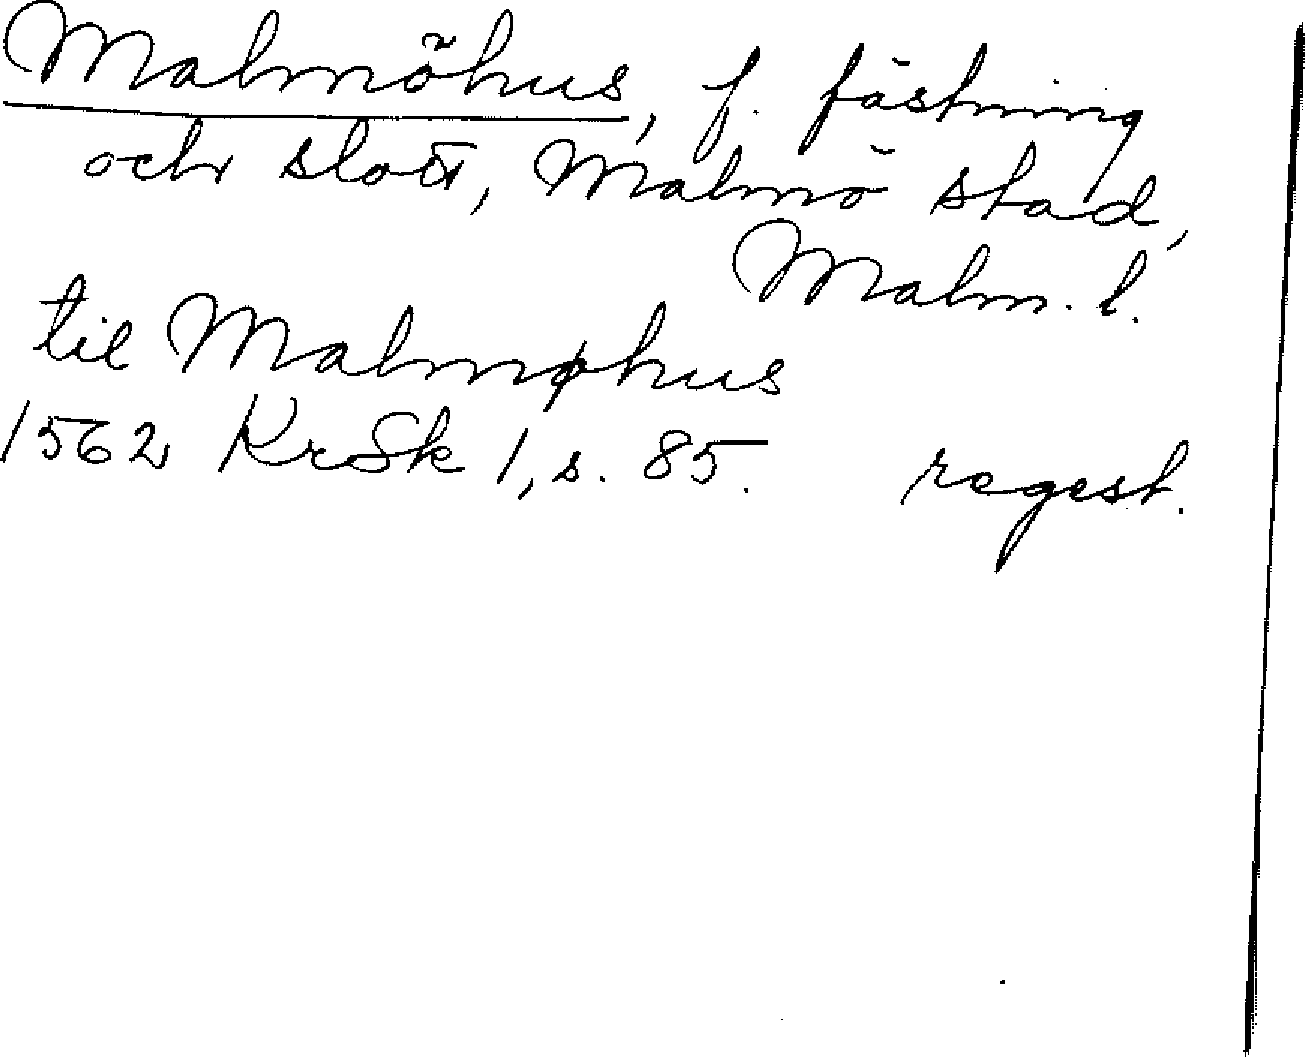 Malmöhus, f. fästning
och slott, Malmö stad,
Malm. l.
til Malmøhus
1562 KrSk 1, s. 85. regest.